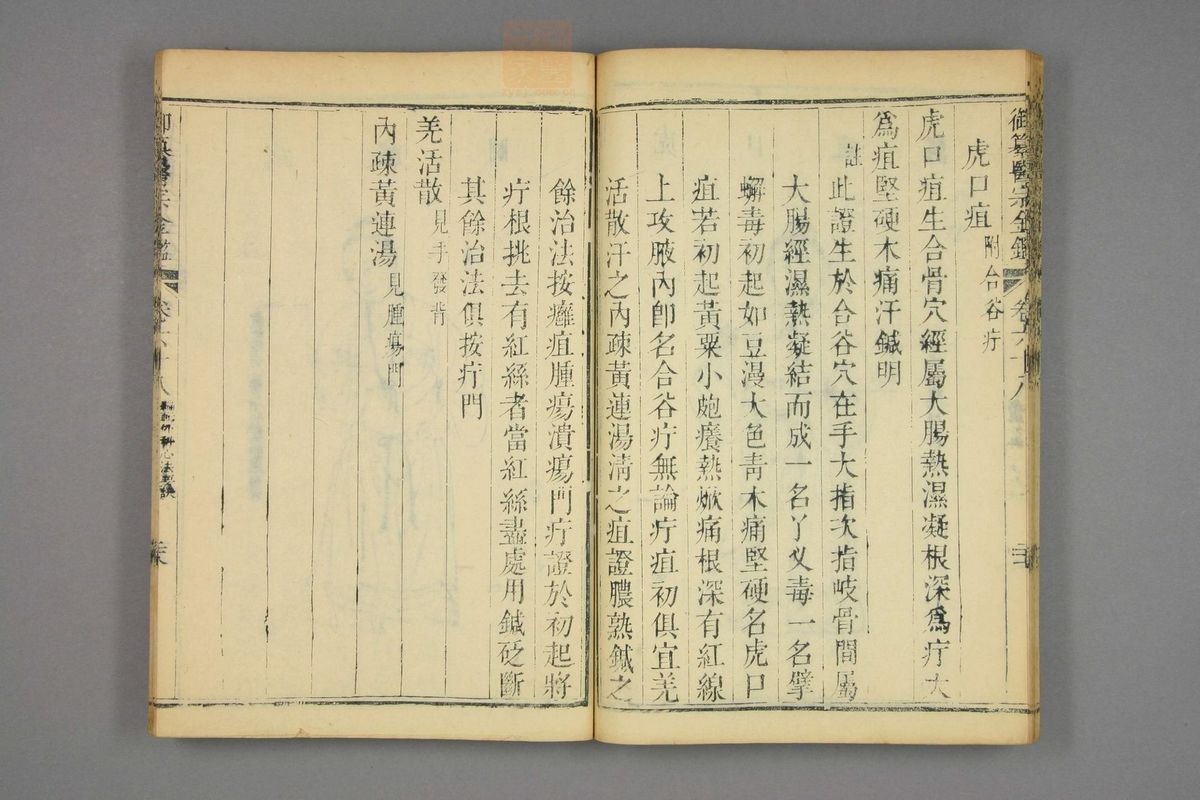 御纂醫宗金鑑 卷六十八
虎口疽 附合谷疔
虎口疽生合骨穴經屬大腸熱濕凝根深爲疔大
爲疽堅硬木痛汗鍼明
註此證生於合谷穴在手大指次指岐骨間屬
大腸經濕熱凝結而成一名丫叉毒一名擘
蠏毒初起如豆漫大色青木痛堅硬名虎口
疽若初起黃粟小皰癢熱焮痛根深有紅線
上攻腋內卽名合谷疔無論疔疽初俱宜羌
活散汗之內疎黃連湯清之疽證膿熟鍼之
餘治法按癰疽腫瘍潰瘍門疔證於初起將
疔根挑去有紅絲者當紅絲盡處用鍼砭斷
其餘治法俱按疔門
羌活散 見手發背
內疎黃連湯 見腫瘍門
御纂醫宗金鑑 卷六十八